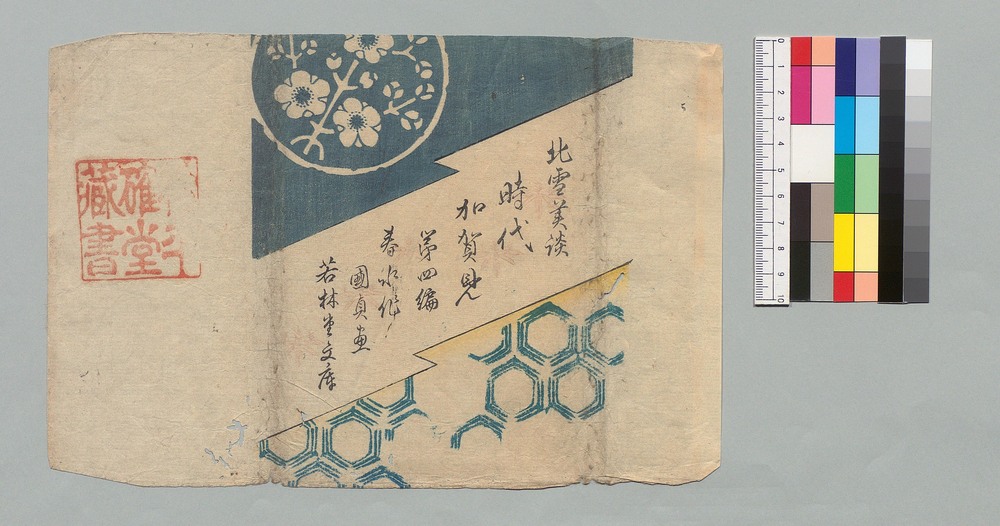 北雪美談
時代
加賀見
第四編
春水作
國貞画
若林堂文庫
雄堂
藏書
0 1 2 3 4 5 6 7 8 9 10